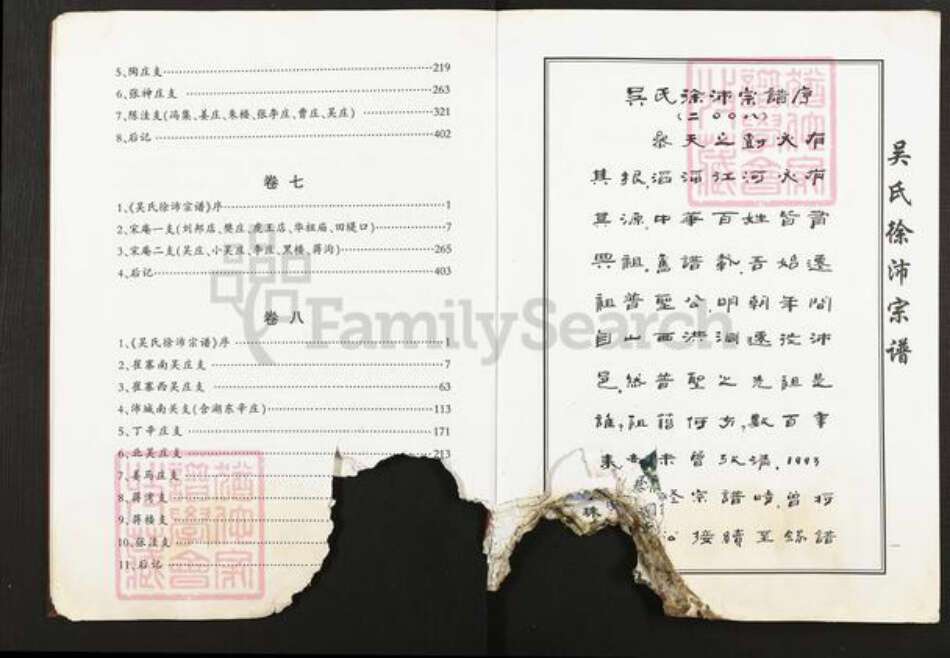 5、陶庄支……219
6、张神庄支……263
7、陈洼支(冯集、姜庄、朱楼、张李庄、曹庄、吴庄)……321
8、后记……402
卷 七
1、《吴氏徐沛宗谱》序……1
2、宋庵一支(刘邦店、樊庄、虎王店、华祖庙、田堤口)……7
3、宋庵二支(吴庄、小吴庄、李庄、黑楼、蒋沟)……265
4、后记……403
卷 八
1、《吴氏徐沛宗谱》序……1
2、崔寨南吴庄支……7
3、崔寨西吴庄支……63
4、沛城南关支(含湖东辛庄)……113
5、丁辛庄支……171
6、北吴庄支……213
7、姜马庄支
8、蒋湾支
9、蒋楼支
10、张洼支
11、后记
吴氏徐沛宗譜序
(二00八)
參天之樹必有
其根,滔滔江河必有
其源,中華百姓皆當
興祖,篤譜
祖普聖公,明朝年間
自山西洪洞遷沛
邑,然普聖之先祖是
誰,祖籍何方,數百年
來 未曾 清,1993
宗譜時,曾将
接續至 譜
吴氏徐沛宗谱
FamilySearch